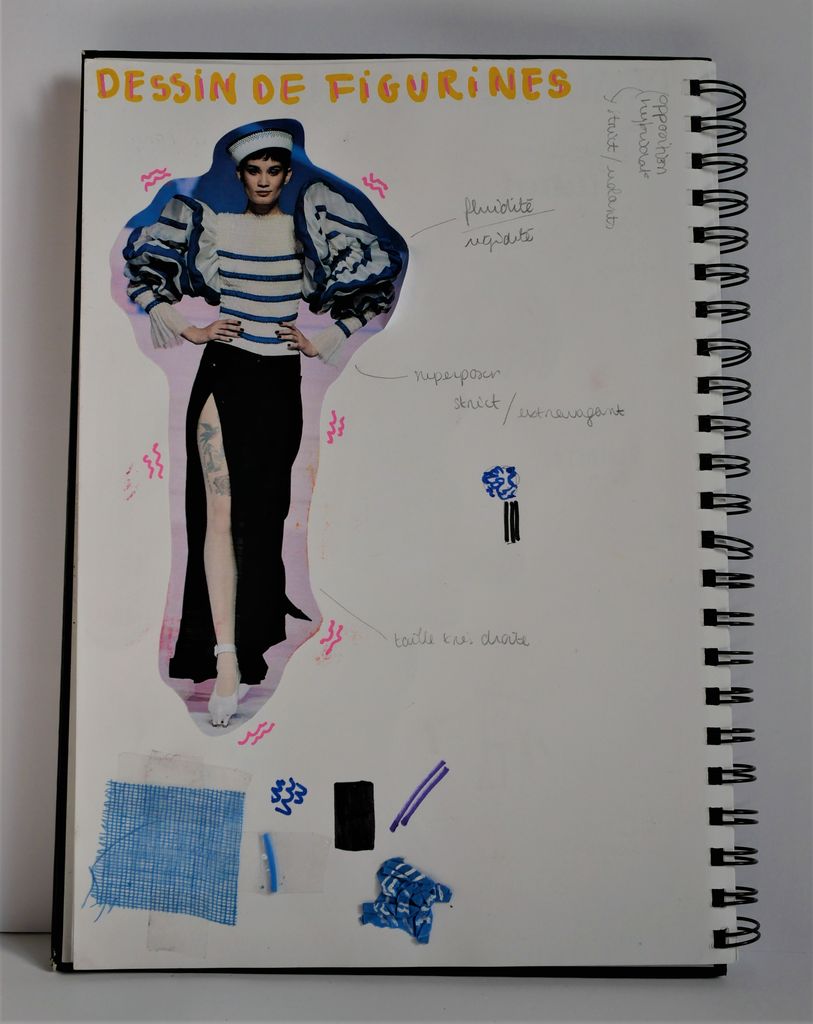 DESSIN DE FIGURINES
opposition
strict/volants
fluidité
rigidité
superposer
strict/extravagant
taille droite